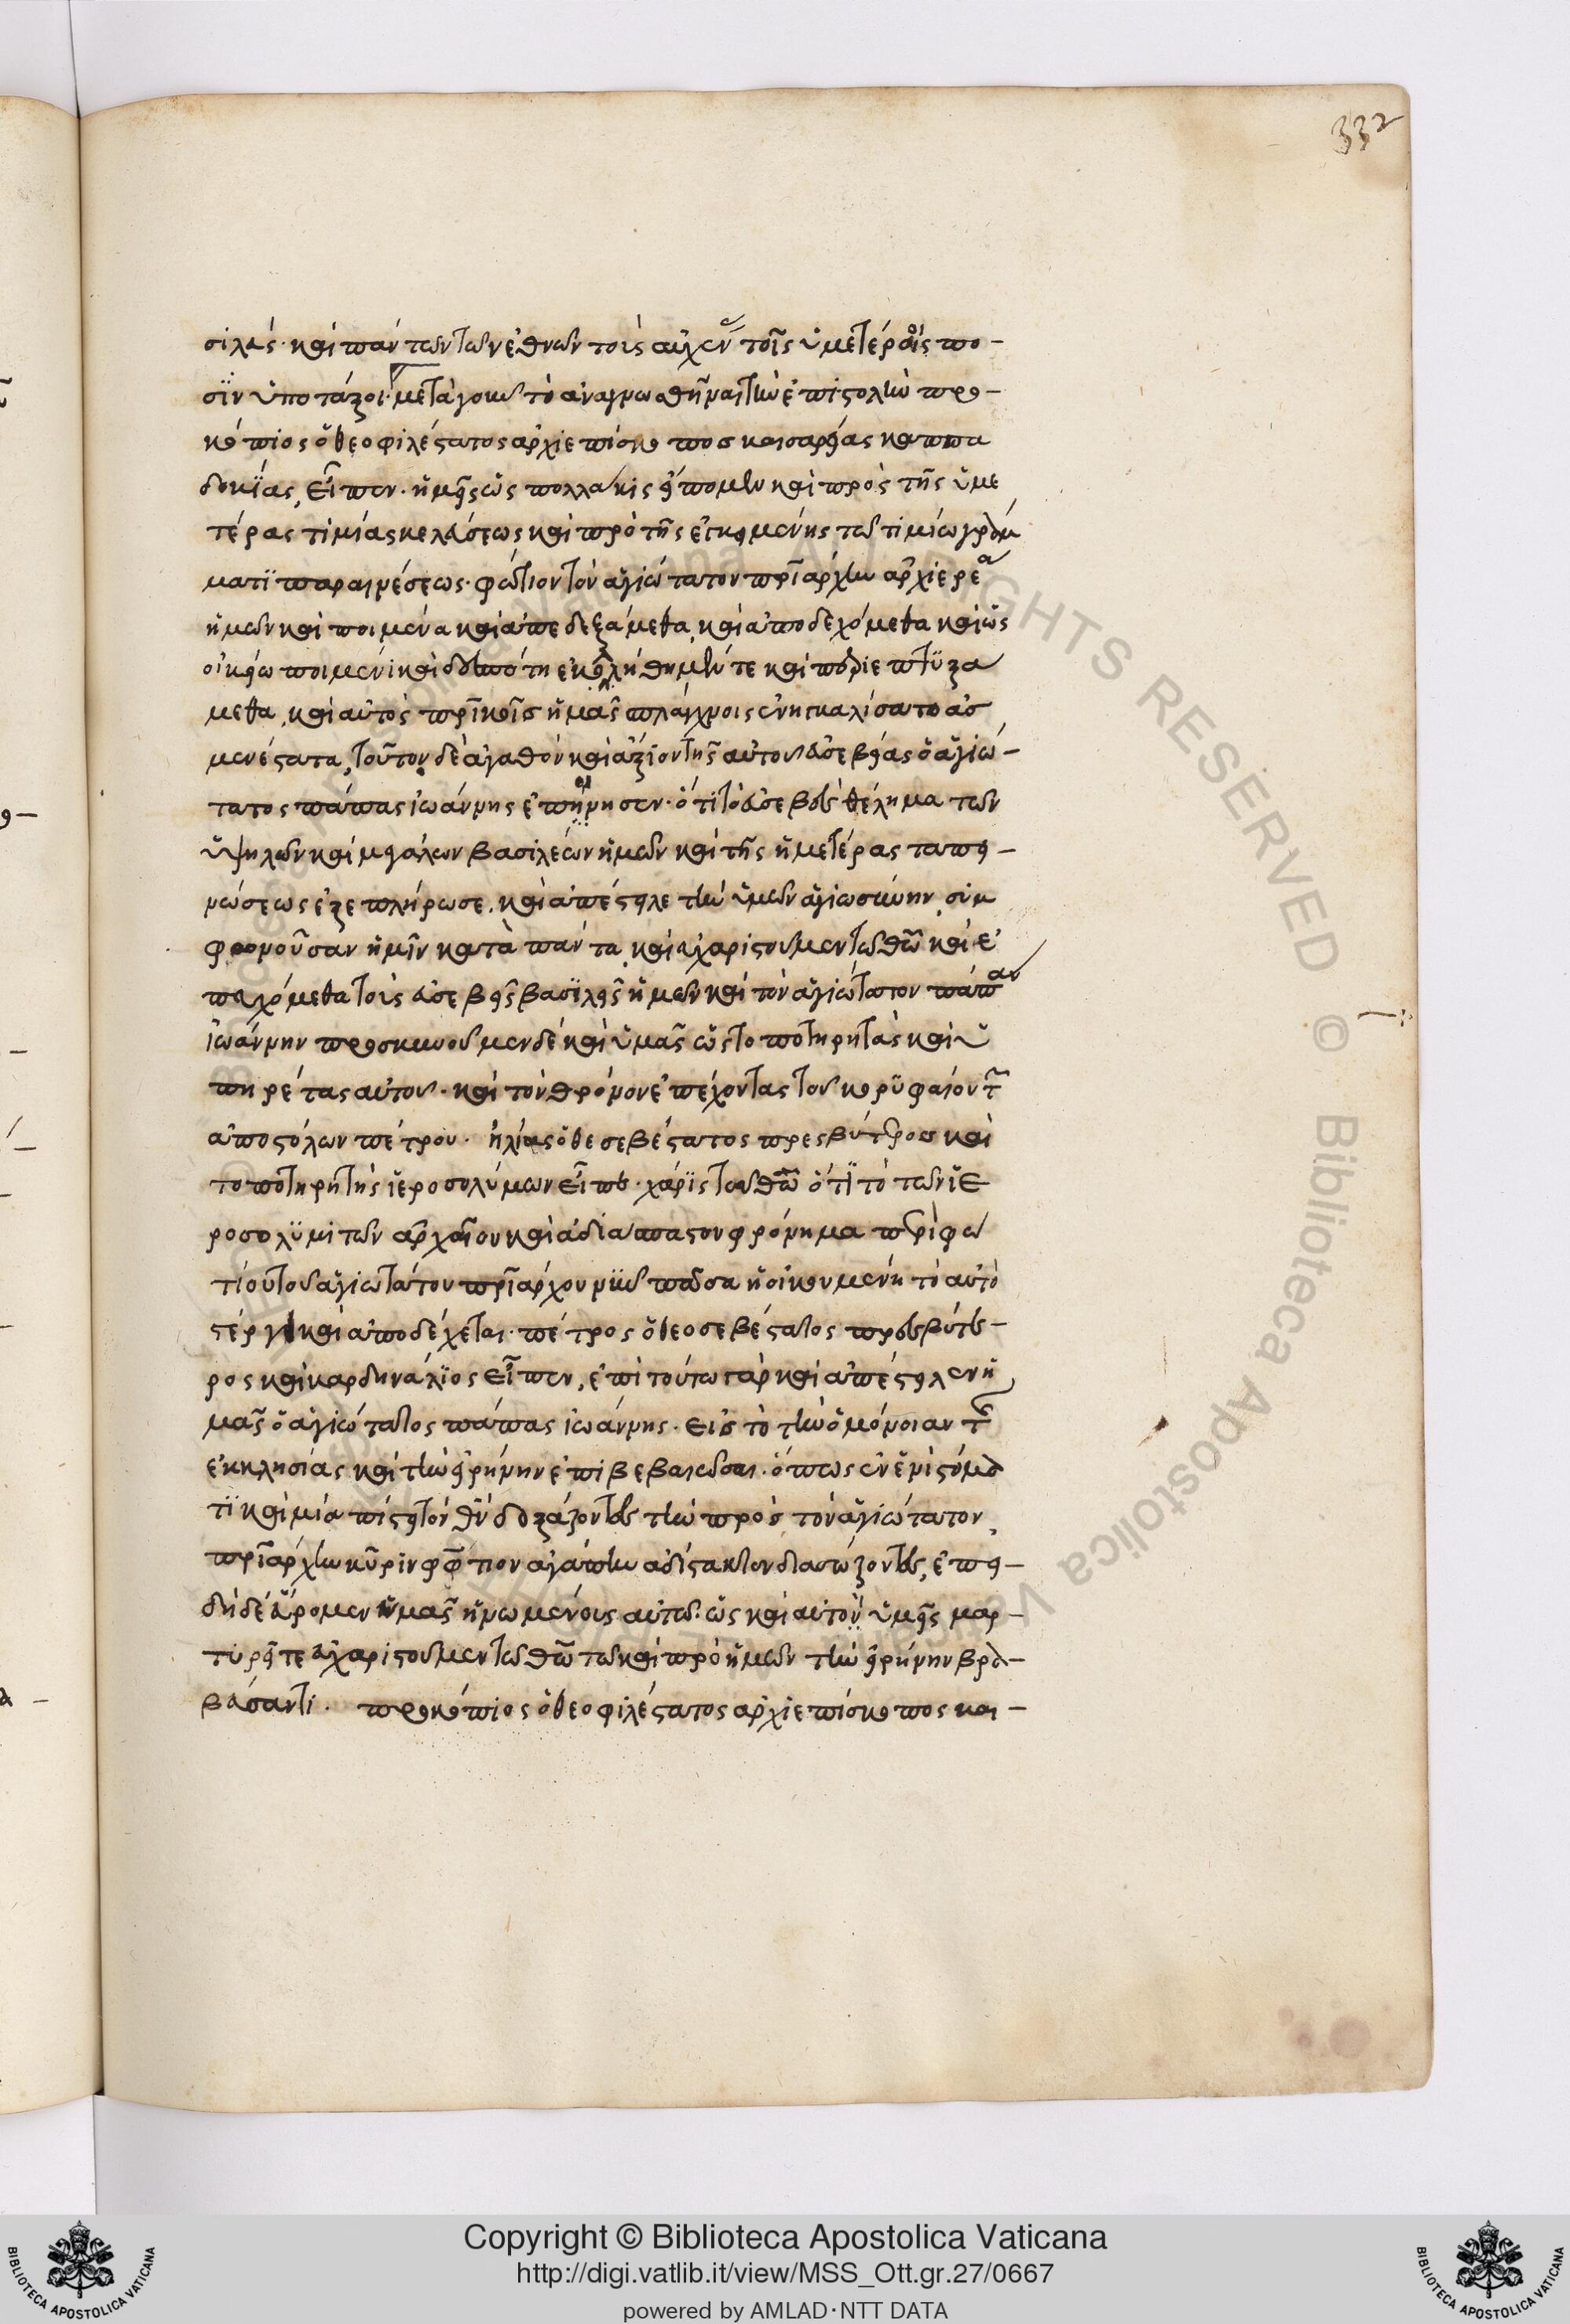 332
σιλεῖς· καὶ πάντων τῶν ἐθνῶν τοὺς αὐχένας τοῖς ὑμετέροις πο-
σὶν ὑποτάξοι· μετὰ γοῦν τὸ ἀναγνωσθῆναι τὴν ἐπιστολὴν προ-
κόπιος ὁ θεοφιλέστατος ἀρχιεπίσκοπος καισαρείας καππα
δοκίας, εἶπεν· ἡμεῖς ὡς πολλάκις εἴπομεν καὶ πρὸς τῆς ὑμε
τέρας τιμίας κελεύσεως καὶ πρὸ τῆς ἐγκειμένης τῶ τιμίω γράμ
ματι παραινέσεως· φώτιον τὸν ἁγιώτατον πριάρχην ἀρχιερέα
ἡμῶν καὶ ποιμένα καὶ ἀπεδεξάμεθα, καὶ ἀποδεχόμεθα καὶ ὡς
οἰκείω ποιμένι καὶ δεσπότη ἐκολλήθημέν τε καὶ περιεπτυξά
μεθα, καὶ αὐτὸς πρικοῖς ἡμᾶς σπλάγχνοις ἐνηγκαλίσατο ἀσ
μενέστατα, τοῦτον δὲ ἀγαθὸν καὶ ἄξιον τῆς αὐτοῦ εὐσεβείας ὁ ἁγιώ-
τατος πάπας ἰωάννης ἐποίησεν· ὅτι τὸ εὐσεβὲς θέλημα τῶν
ὑψηλῶν καὶ μεγάλων βασιλέων ἡμῶν καὶ τῆς ἡμετέρας ταπει-
νώσεως ἐξεπλήρωσε, καὶ ἀπέστειλε τὴν ὑμῶν ἁγιωσύνην, συμ
φρονοῦσαν ἡμῖν κατὰ πάντα, καὶ εὐχαριστοῦμεν τῶ θῶ καὶ ἐ
πευχόμεθα τοῖς εὐσεβεῖς βασιλεῖς ἡμῶν καὶ τὸν ἁγιώτατον πάπαν
ἰωάννην προσκυνοῦμεν δὲ καὶ ὑμᾶς ὡς τοποτηρητὰς καὶ ὑ
πηρέτας αὐτοῦ· καὶ τὸν θρόνον ἐπέχοντας τοῦ κορυφαίου τῶν
ἀποστόλων πέτρου· ἠλίας ὁ θεοσεβέστατος πρεσβύτερος καὶ
τοποτηρητὴς ἱεροσολύμων εἶπε· χάρις τῶ θῶ ὅτι τὸ τῶν ἱε
ροσολυμιτῶν ἀρχαῖον καὶ ἀδιάσπαστον φρόνημα περὶ φω
τίου τοῦ ἁγιωτάτου πριάρχου νῦν πᾶσα ἡ οἰκουμένη τὸ αὐτὸ
στέργει καὶ ἀποδέχεται· πέτρος ὁ θεοσεβέστατος πρεσβύτε-
ρος καὶ καρδηνάλιος εἶπεν, ἐπὶ τούτω γὰρ καὶ ἀπέστειλεν ἡ
μᾶς ὁ ἁγιώτατος πάπας ἰωάννης· εἰς τὸ τὴν ὁμόνοιαν τῆς
ἐκκλησίας καὶ τὴν εἰρήνην ἐπιβεβαιῶσαι· ὅπως ἐν ἑνὶ στόμα
τι καὶ μιᾶ πίστει τὸν θν δοξάζοντες τὴν πρὸς τὸν ἁγιώτατον
πριάρχην κύριν φώτιον ἀγάπην ἀδίστακτον διασώζοντες, ἐπει-
δὴ δὲ εὕρομεν ὑμᾶς ἡνωμένους αὐτῶ· ὡς καὶ αὐτοὶ ὑμεῖς μαρ-
τυρεῖτε εὐχαριστοῦμεν τῶ θῶ τῶ καὶ πρὸ ἡμῶν τὴν εἰρήνην βρα-
βεύσαντι· προκόπιος ὁ θεοφιλέστατος ἀρχιεπίσκοπος και-
Copyright © Biblioteca Apostolica Vaticana
http://digi.vatlib.it/view/MSS_Ott.gr.27/0667
powered by AMLAD·NTT DATA